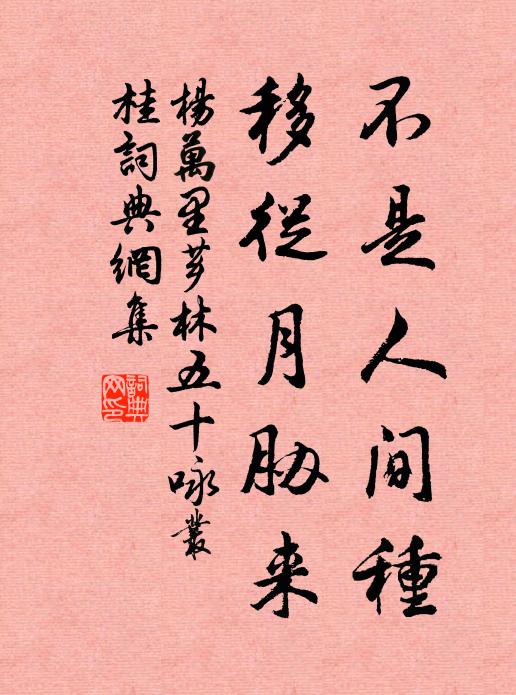 不是人间種
移従月胁来
楊萬里芗林五十咏叢
桂詞典網集
詞典网印